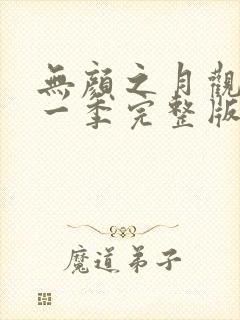 無顏之月觀
一季完整版
魔道弟子